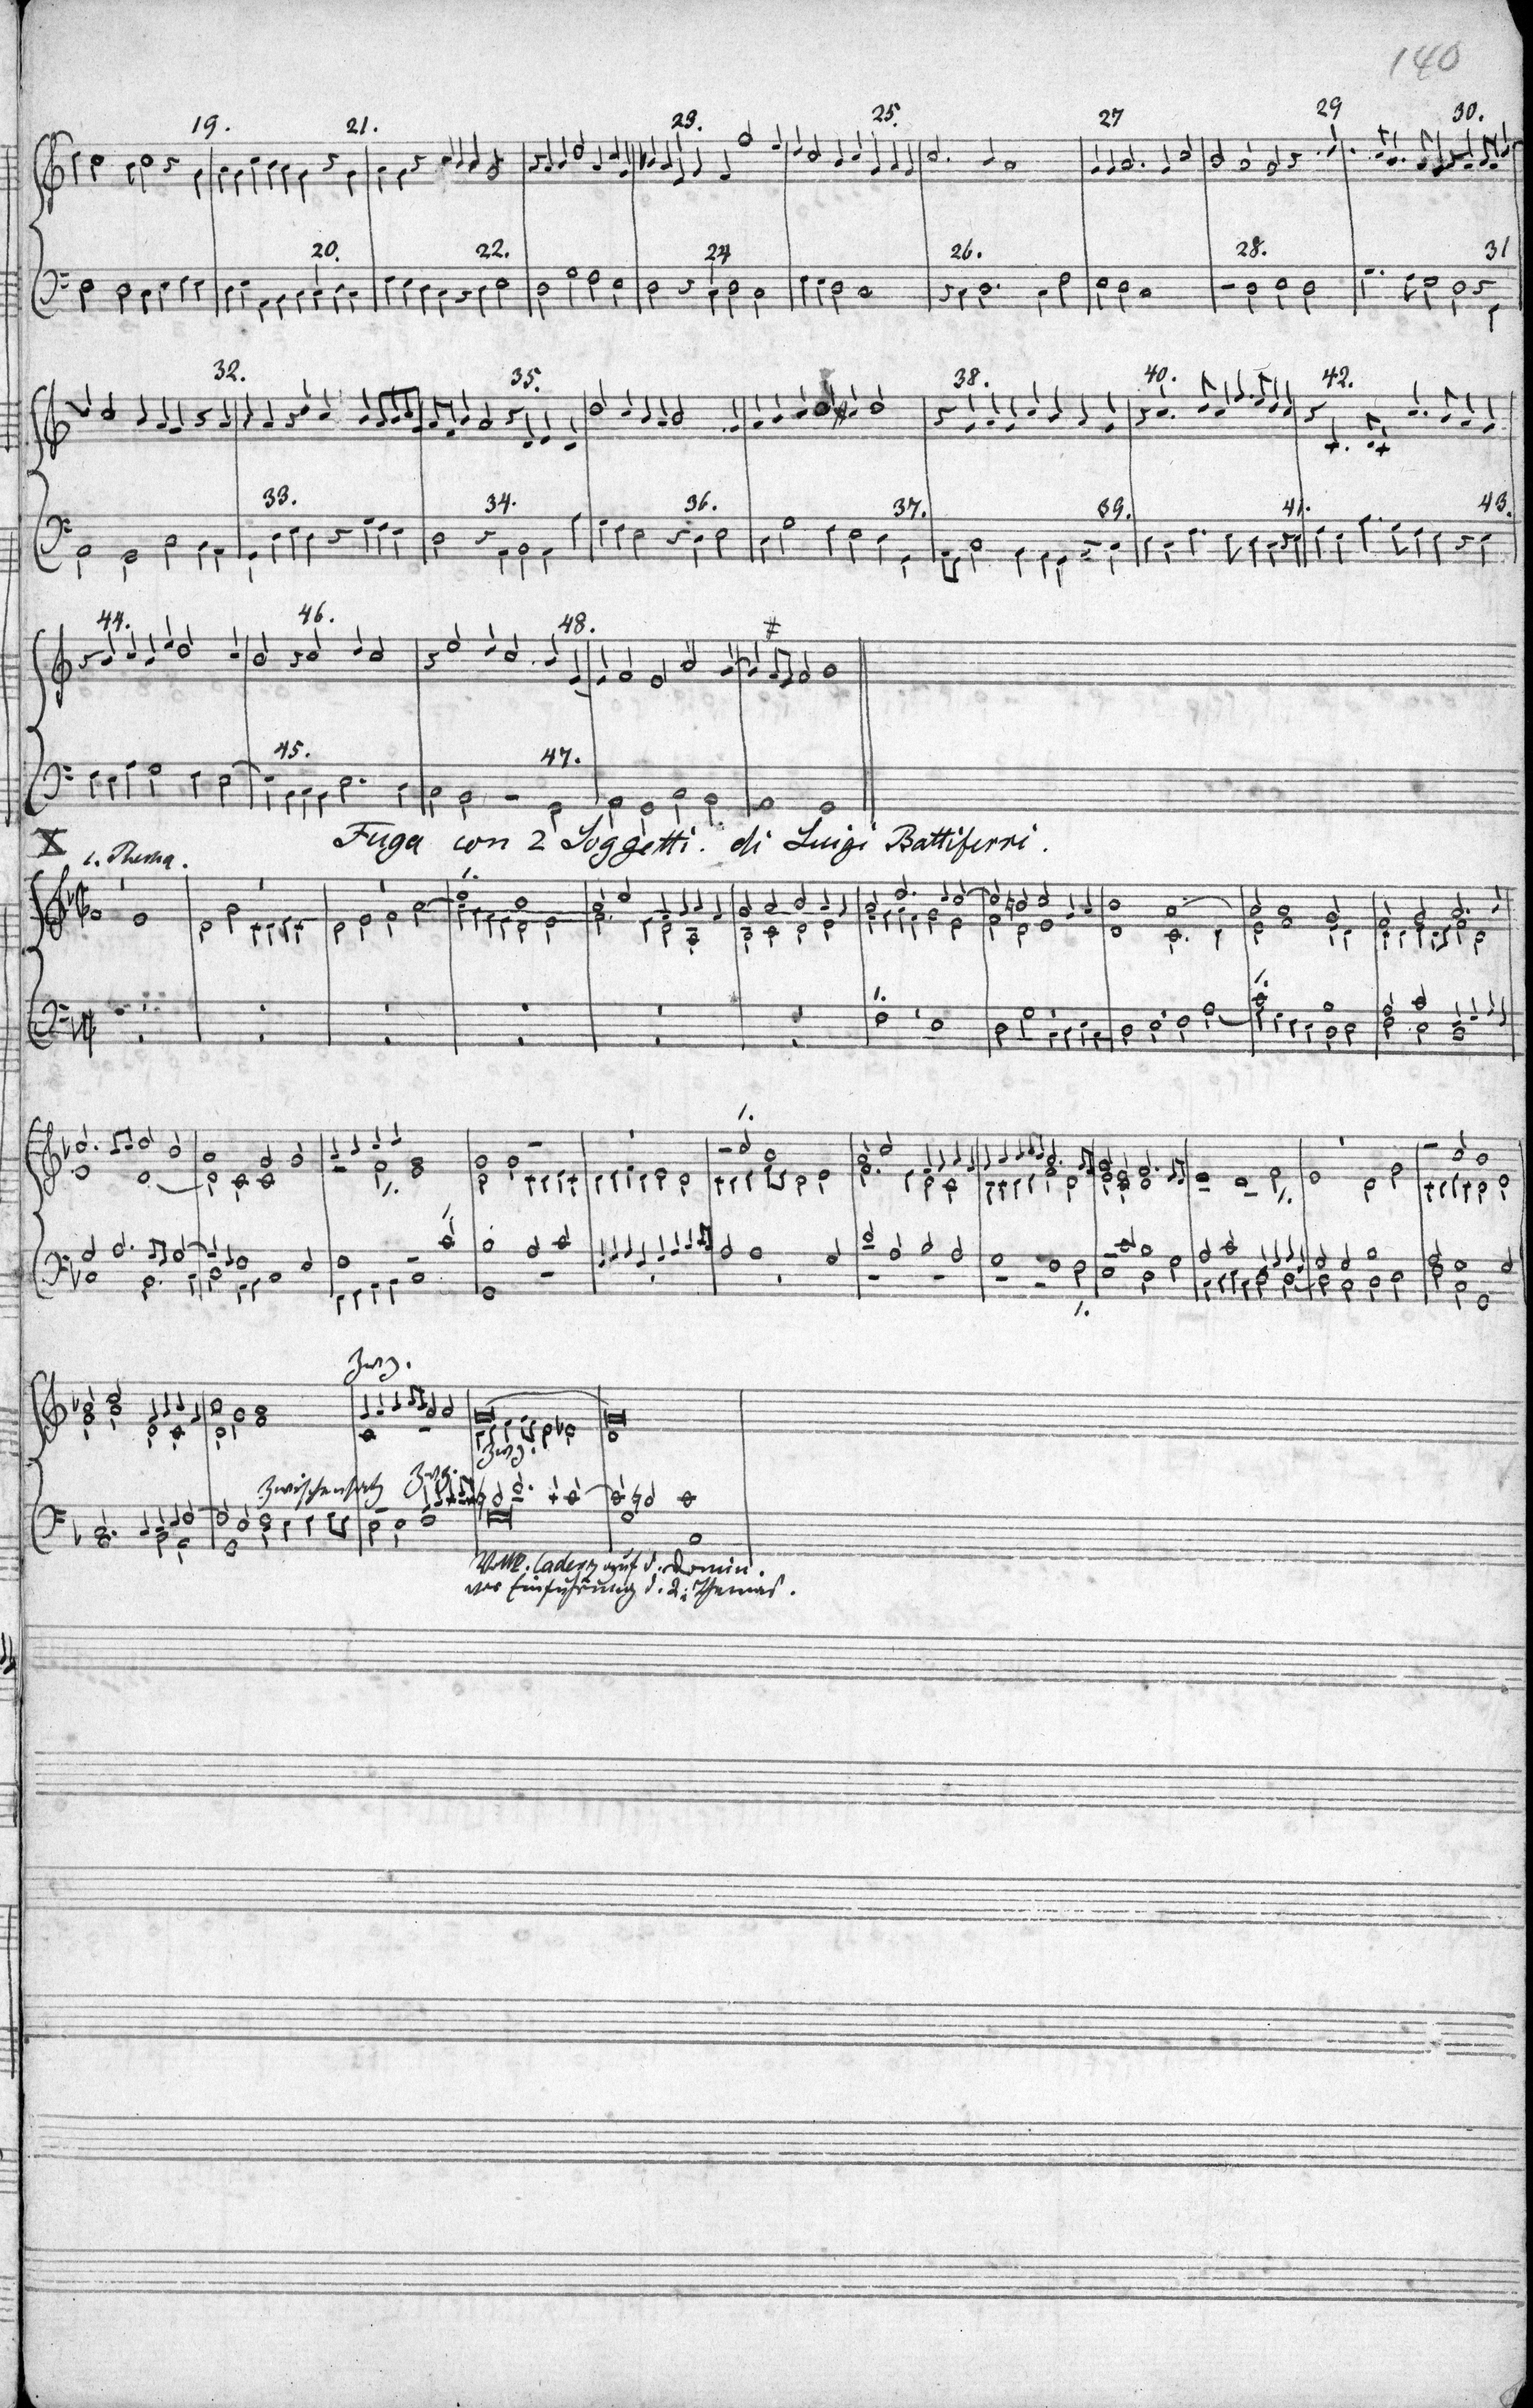 140
19. 21. 23. 25. 27 29 30.
20. 22. 24 26. 28. 31
32. 35. 38. 40. 42.
33. 34. 36. 37. 39. 41. 43.
44. 46. 48.
45. 47.
X Fuga con 2 Soggetti. di Luigi Battiferri.
1. Thema.
1.
1. 1.
1.
1. 1.
1. 1.
Zwg.
Zwg.
Zwischensatz Zwg.
Vollk. Cadenz auf d. Domin.
vor Einführung d. 2. Themas.